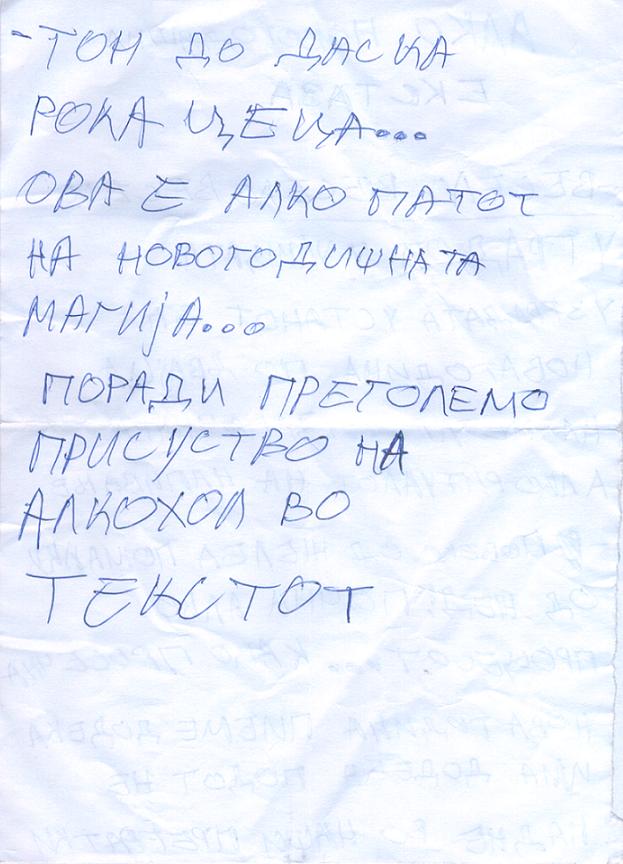 -ТОН ДО ДАСКА
РОКА ЦЕЦА...
ОВА Е АЛКО ПАТОТ
НА НОВОГОДИШНАТА
МАГИЈА...
ПОРАДИ ПРЕГОЛЕМО
ПРИСУСТВО НА
АЛКОХОЛ ВО
ТЕКСТОТ